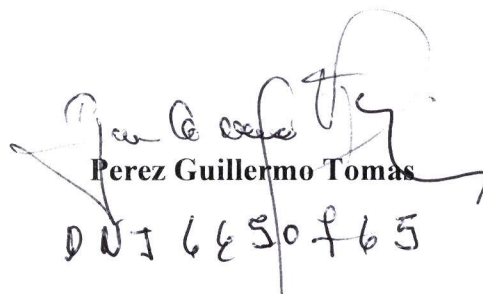 Perez Guillermo Tomas
DNI 6650765